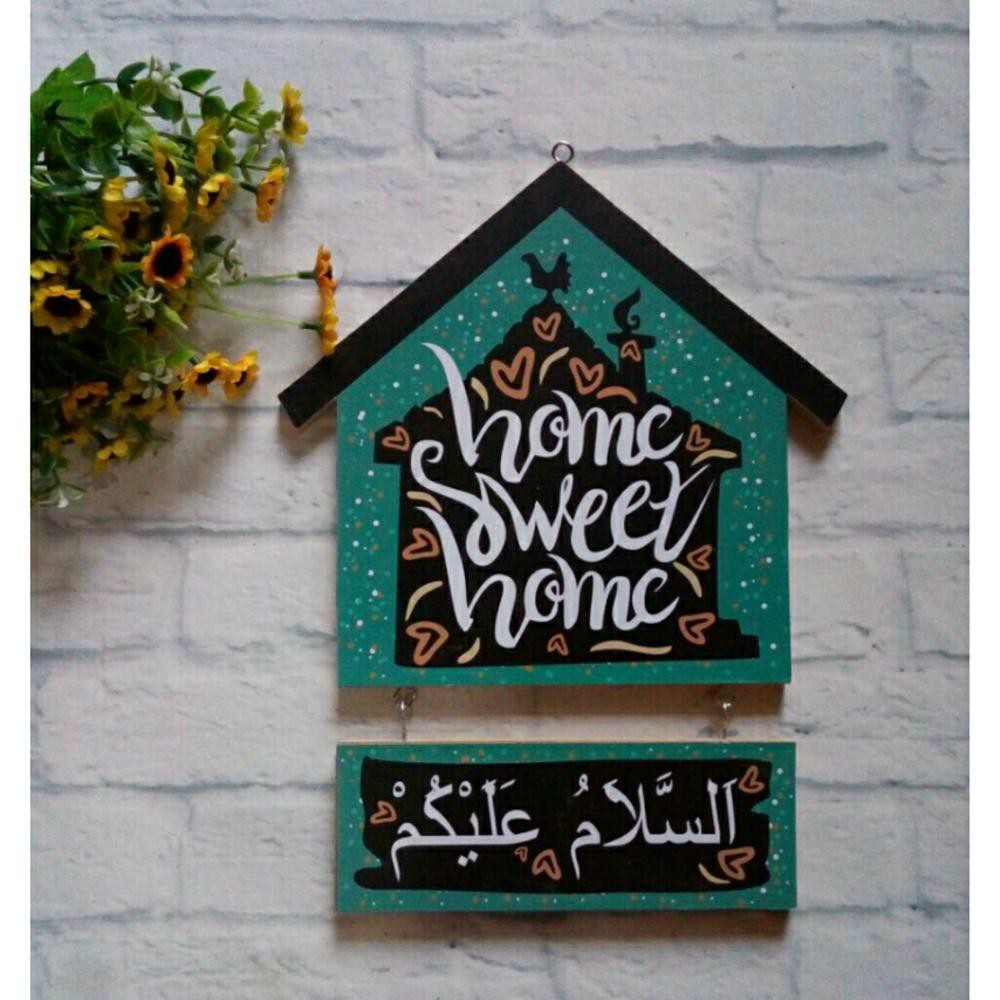 home
sweet
home
اَلسَّلاَمُ عَلَيْكُمْ